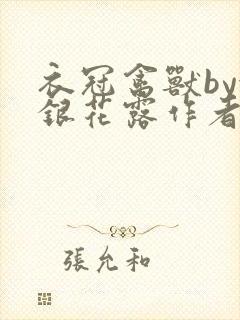 衣冠禽獸by
銀花露作者
張允和